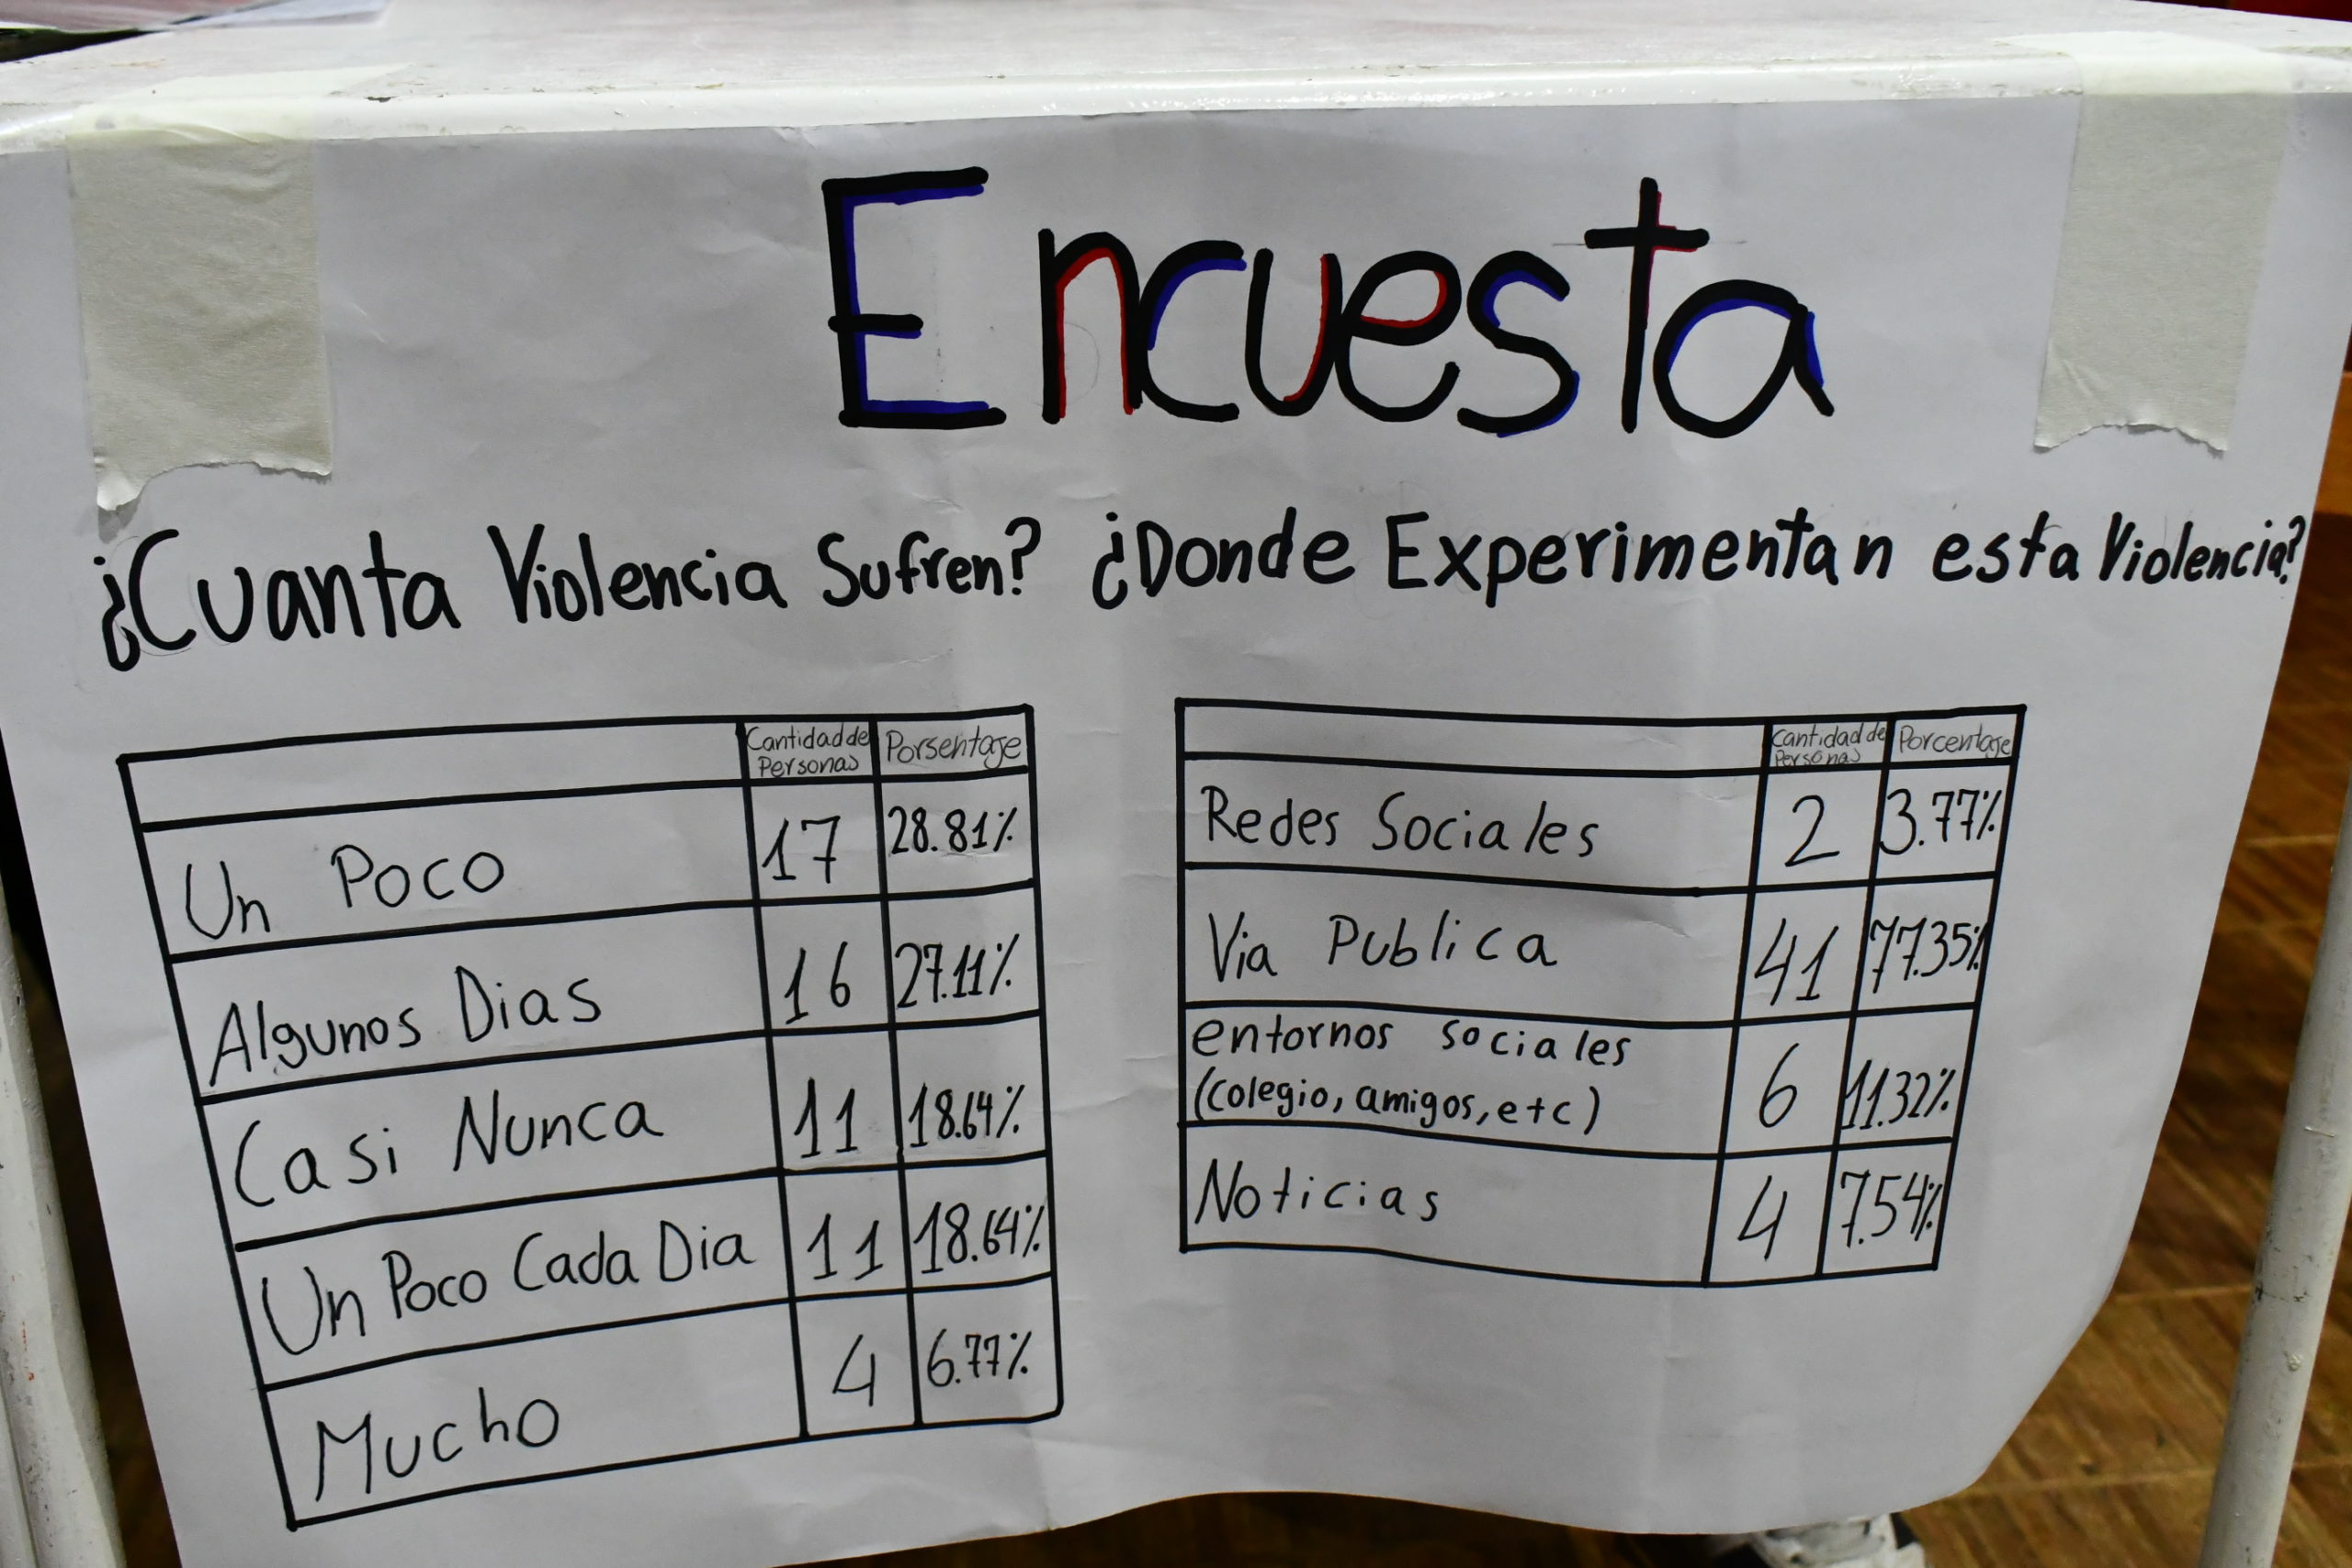 Encuesta
¿Cuanta Violencia Sufren?
Cantidad de Personas Porsentaje
Un Poco 17 28.81%
Algunos Dias 16 27.11%
Casi Nunca 11 18.64%
Un Poco Cada Dia 11 18.64%
Mucho 4 6.77%
¿Donde Experimentan esta Violencia?
Cantidad de Personas Porcentaje
Redes Sociales 2 3.77%
Via Publica 41 77.35%
entornos sociales
(colegio, amigos, etc) 6 11.32%
Noticias 4 7.54%